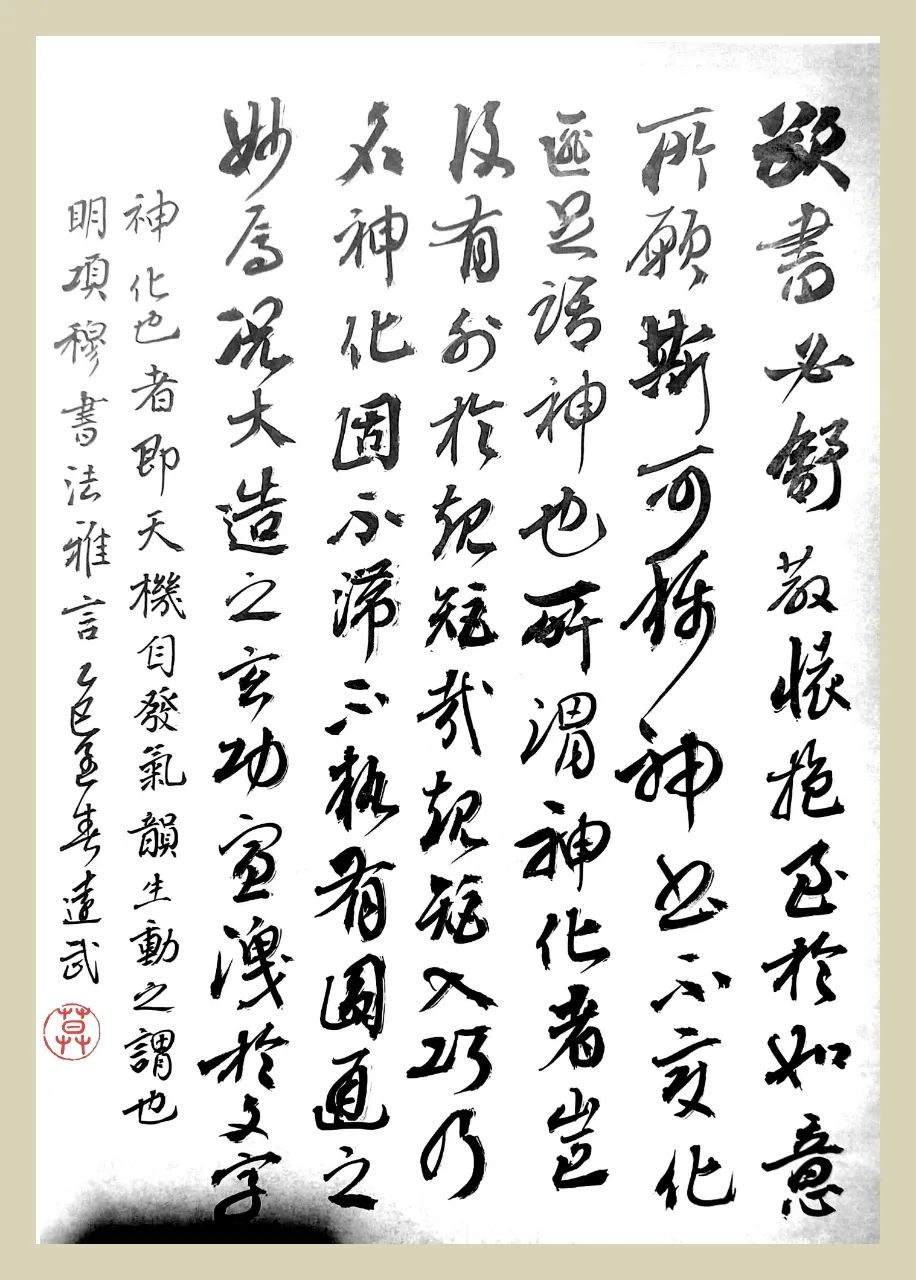 欲書必舒散懷抱至於如意
所願斯可稱神書不變化
匪足語神也所謂神化者豈
復有外於規矩哉規矩入巧乃
名神化固不滯不執有圓通之
妙焉況大造之玄功宣洩於文字
神化也者即天機自發氣韻生動之謂也
明項穆書法雅言乙巳孟春遠武